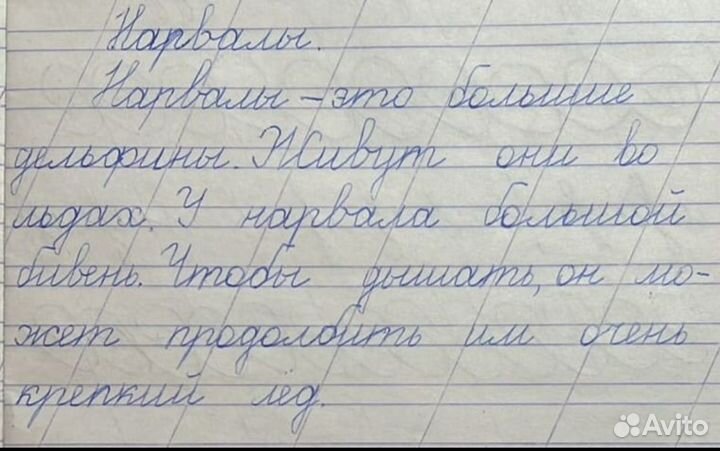 Нарвалы.
Нарвалы – это большие
дельфины. Живут они во
льдах. У нарвала большой
бивень. Чтобы дышать, он мо-
жет продолбить им очень
крепкий лёд.
Avito